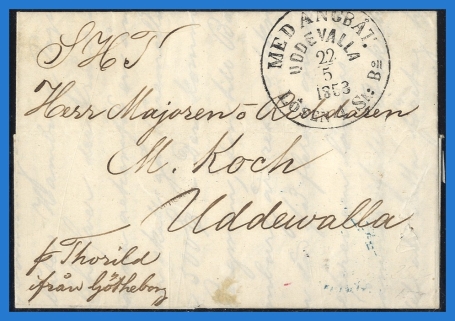 S H T
MED ÅNGBÅT.
UDDEVALLA
22
5
1853
LÖSEN
Sk: Bco
Herr Majoren o Redda­ren
M. Koch
Uddewalla
p Thorild
ifrån Götheborg